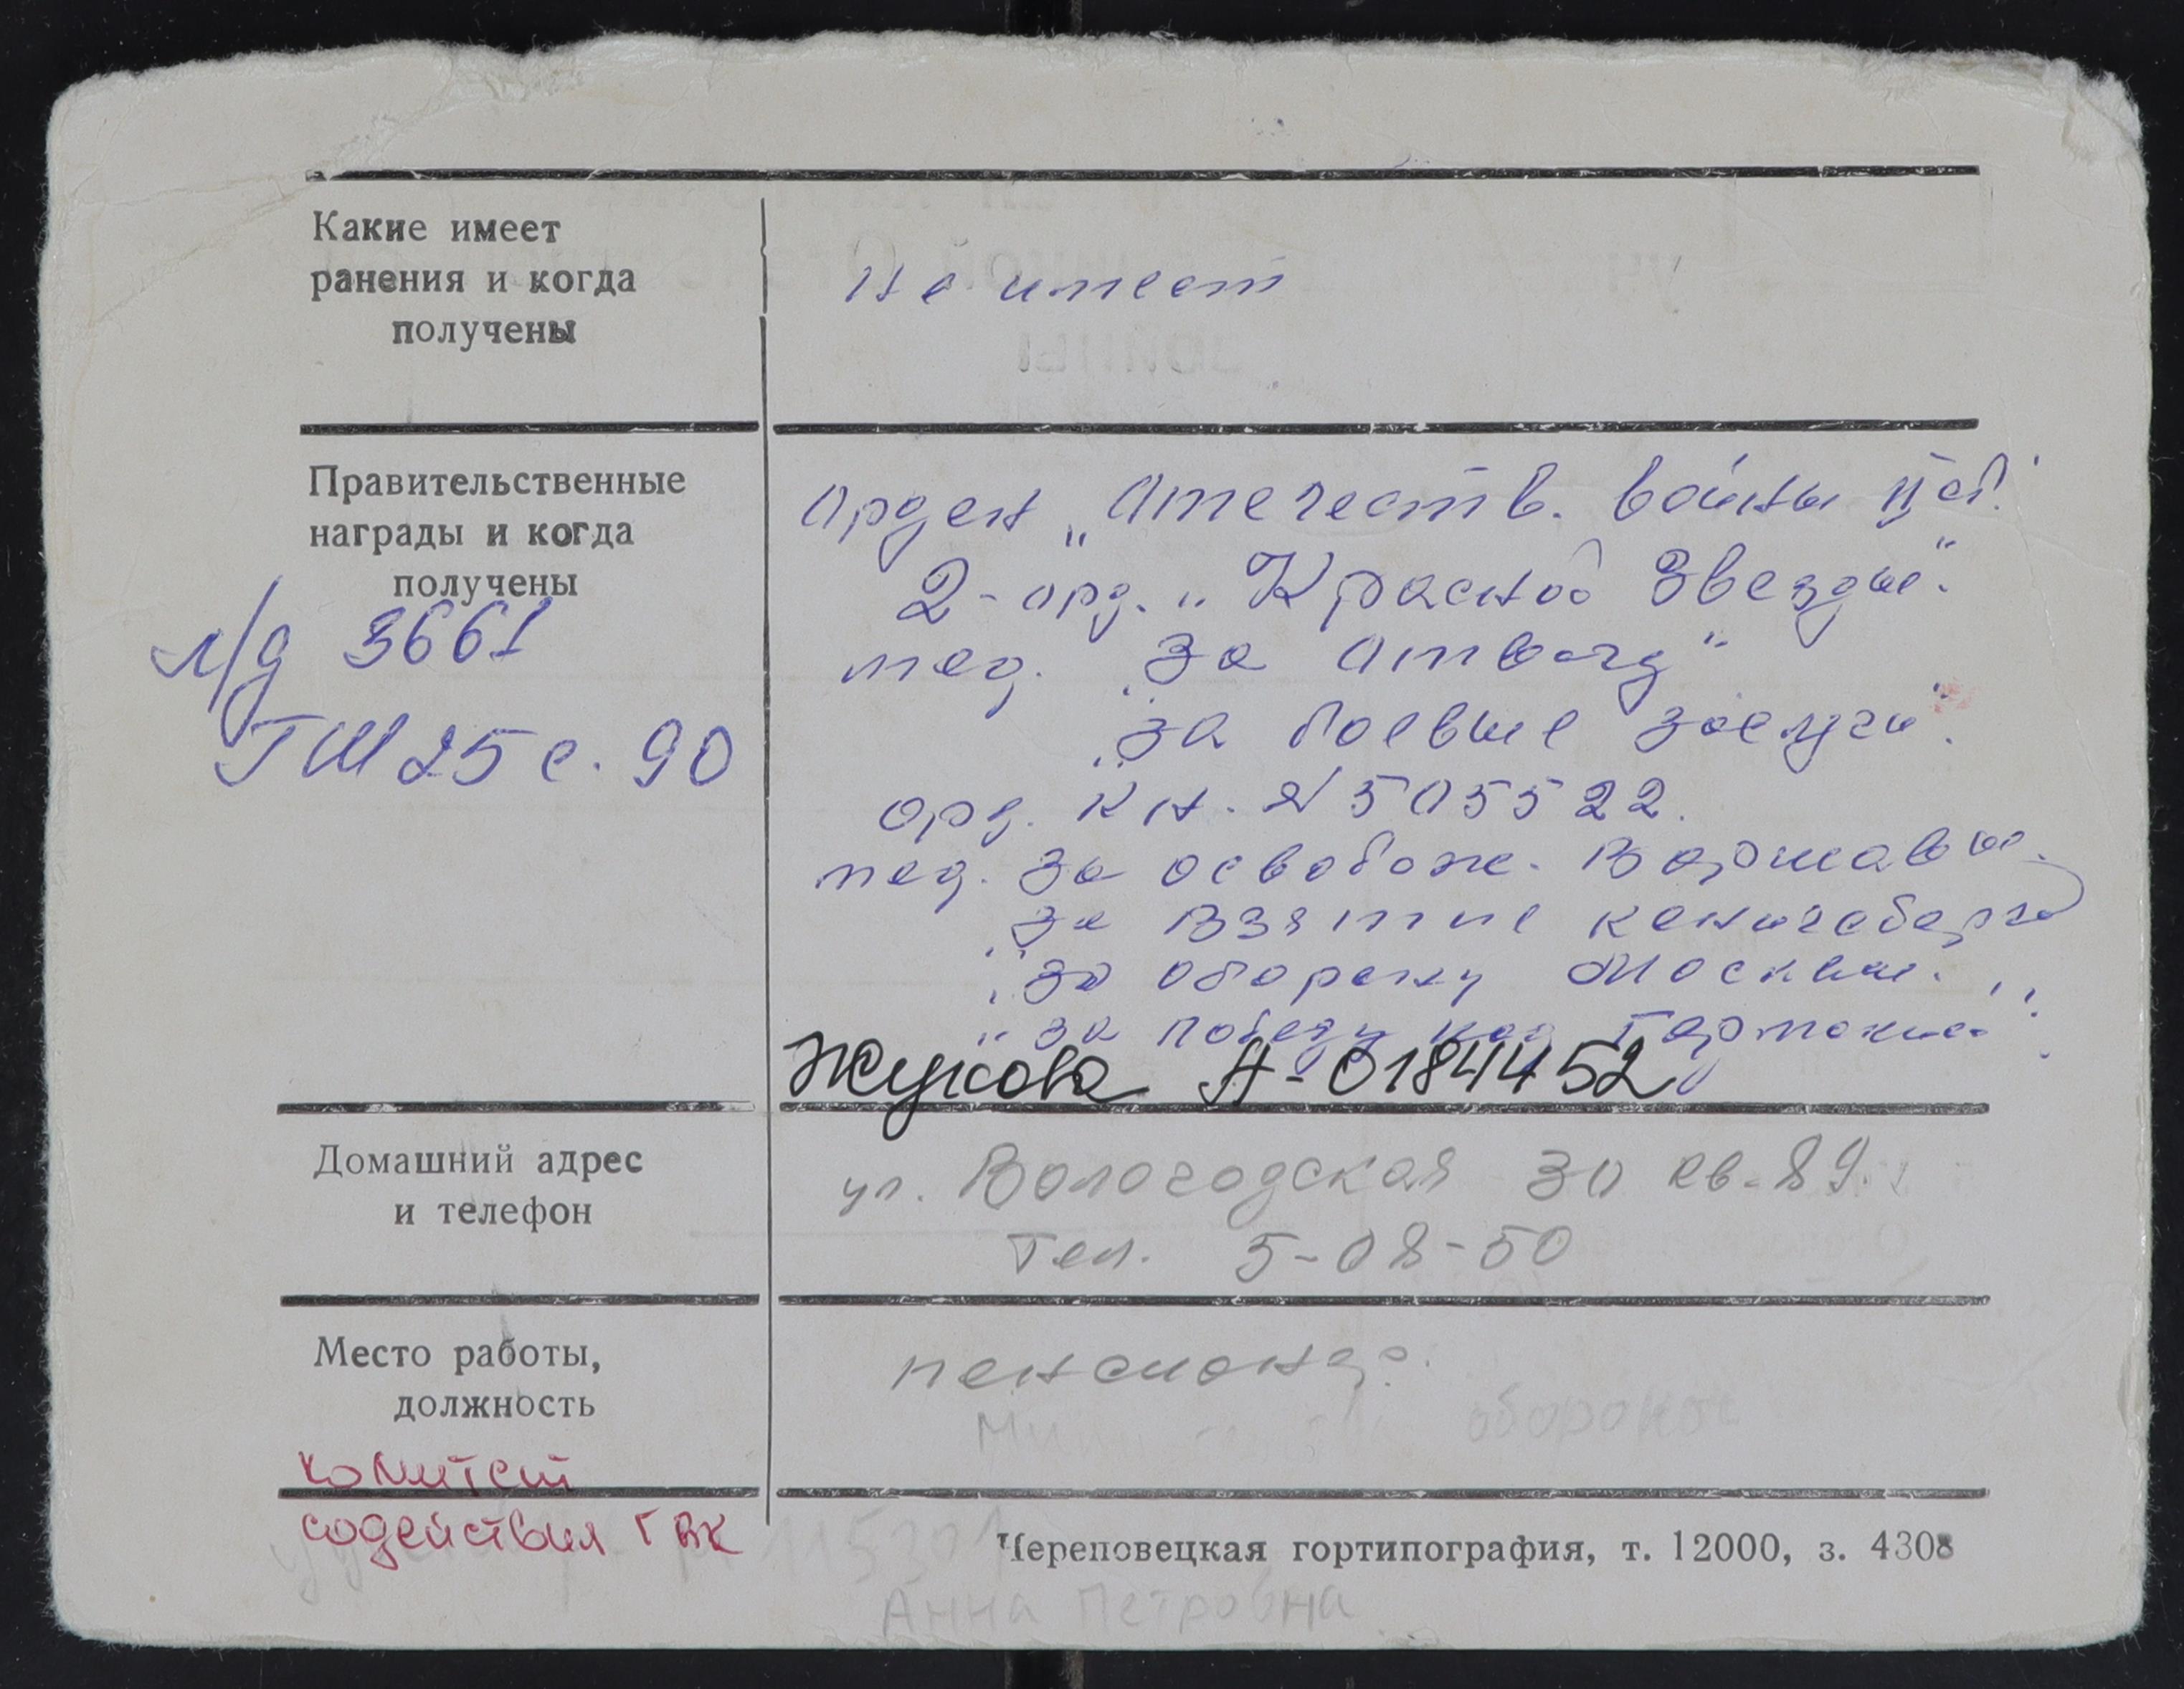 Какие имеет
ранения и когда
получены
не имеет
Правительственные
награды и когда
получены
л/д 3661
ГШ 25 с. 90
Орден „Отечеств. войны II ст."
2-орд. „Красной Звезды".
мед. „За Отвагу"
„за боевые заслуги".
орд. кн. № 505522.
мед. за освобож. Варшавы.
„за взятие Кенигсберга
„за оборону Москвы. "
„за победу над Германией".
Жукова А-0184452
Домашний адрес
и телефон
ул. Вологодская 30 кв. 89.
Тел. 5-08-50
Место работы,
должность
пенсионер.
обороны
комитет
содействия ГВК
Череповецкая гортипография, т. 12000, з. 4308
Анна Петровна